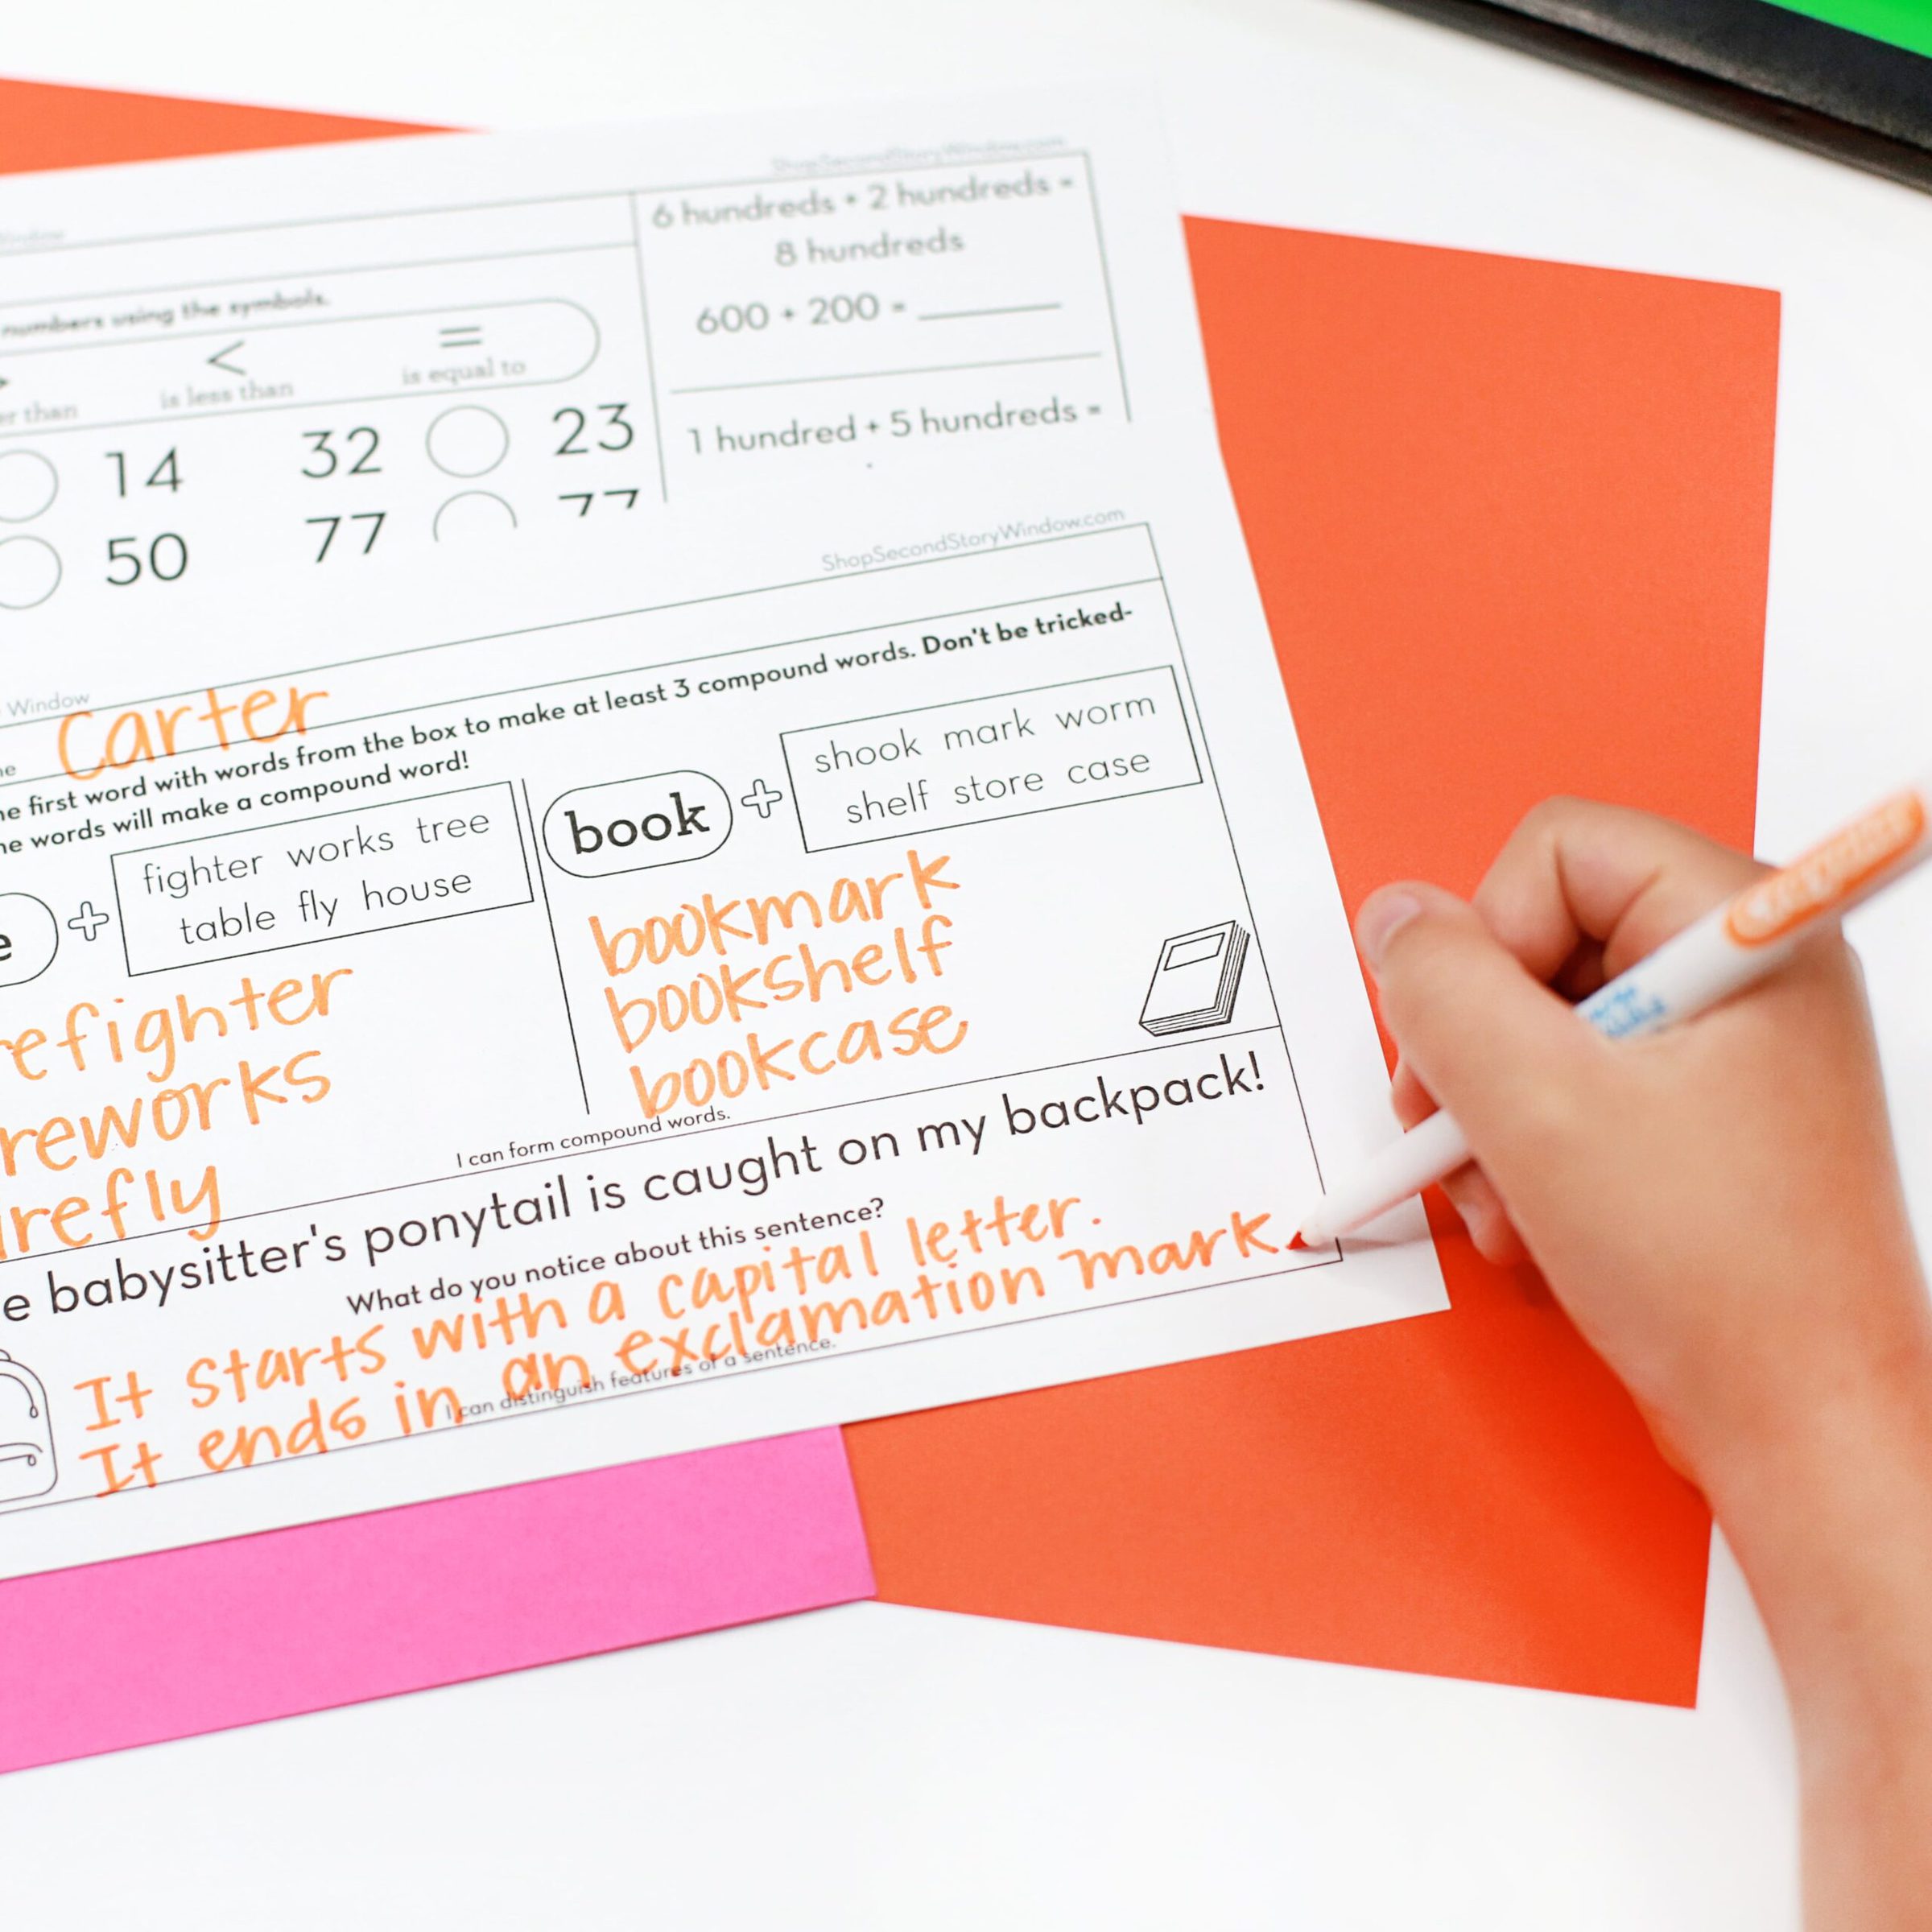 ShopSecondStoryWindow.com
Window
6 hundreds + 2 hundreds =
8 hundreds
600 + 200 =
numbers using the symbols.
< =
er than is less than is equal to
14 32 23
50 77 77
1 hundred + 5 hundreds =
ShopSecondStoryWindow.com
Window
ne Carter
he first word with words from the box to make at least 3 compound words. Don't be tricked-
he words will make a compound word!
e + fighter works tree
table fly house
refighter
reworks
refly
book + shook mark worm
shelf store case
bookmark
bookshelf
bookcase
I can form compound words.
e babysitter's ponytail is caught on my backpack!
What do you notice about this sentence?
It starts with a capital letter.
It ends in an exclamation mark.
I can distinguish features of a sentence.